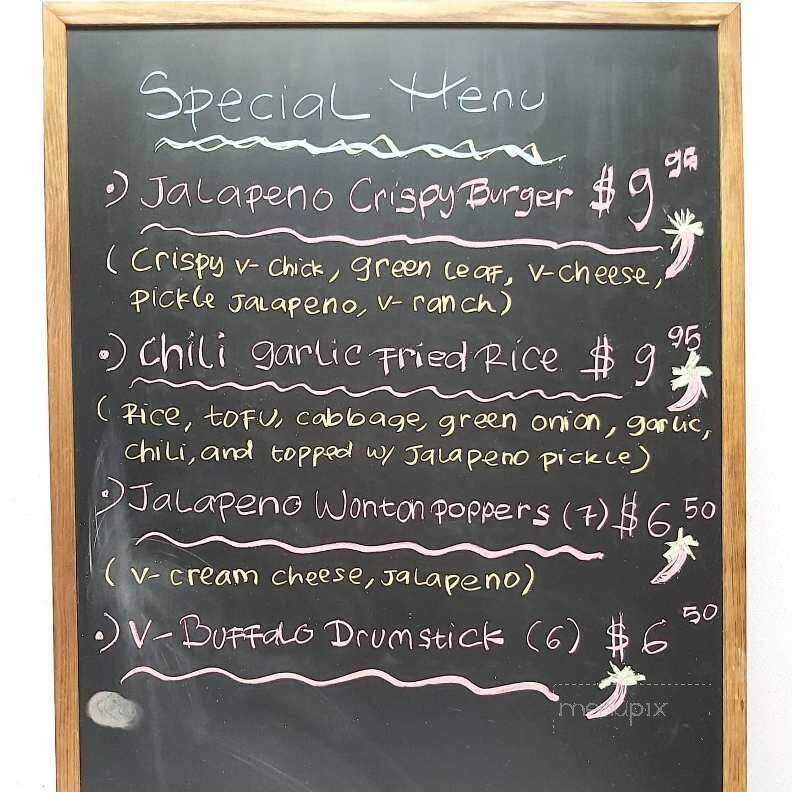 Special Menu
•) Jalapeno Crispy Burger $9 95
(Crispy V-Chick, green Leaf, V-cheese,
Pickle Jalapeno, V-ranch)
•) Chili garlic Fried Rice $9 95
(Rice, TOFU, cabbage, green onion, garlic,
chili, and topped w/ Jalapeno pickle)
•) Jalapeno Wonton poppers (7) $6 50
(V-cream cheese, Jalapeno)
•) V-Buffalo Drumstick (6) $6 50
menupix